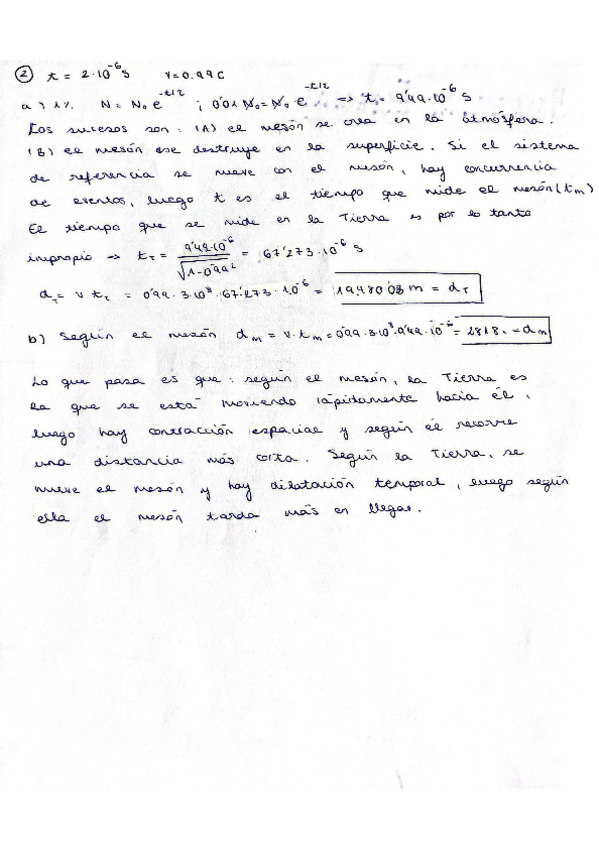 ② t = 2·10⁻⁶ s   v = 0.99c
a) 1%   N = N₀ e^(-t/2) ; 0'01 N₀ = N₀ e^(-t/2) => t = 9'49·10⁻⁶ s
Los sucesos son : (A) el mesón se crea en la atmósfera.
(B) el mesón ese destruye en la superficie. Si el sistema
de referencia se mueve con el mesón, hay concurrencia
de eventos, luego t es el tiempo que mide el mesón (tm)
El tiempo que se mide en la Tierra es por lo tanto
impropio => t_T = 9'49·10⁻⁶ / √(1-0'99²) = 67'273·10⁻⁶ s
d_T = v t_T = 0'99·3·10⁸·67'273·10⁻⁶ = 19.980'08 m = d_T
b) Según el mesón d_m = v·t_m = 0'99·3·10⁸·9'49·10⁻⁶ = 2818. = d_m
Lo que pasa es que : según el mesón, la Tierra es
la que se está moviendo rápidamente hacia él,
luego hay contracción espacial y según él recorre
una distancia más corta. Según la Tierra, se
mueve el mesón y hay dilatación temporal, luego según
ella el mesón tarda más en llegar.